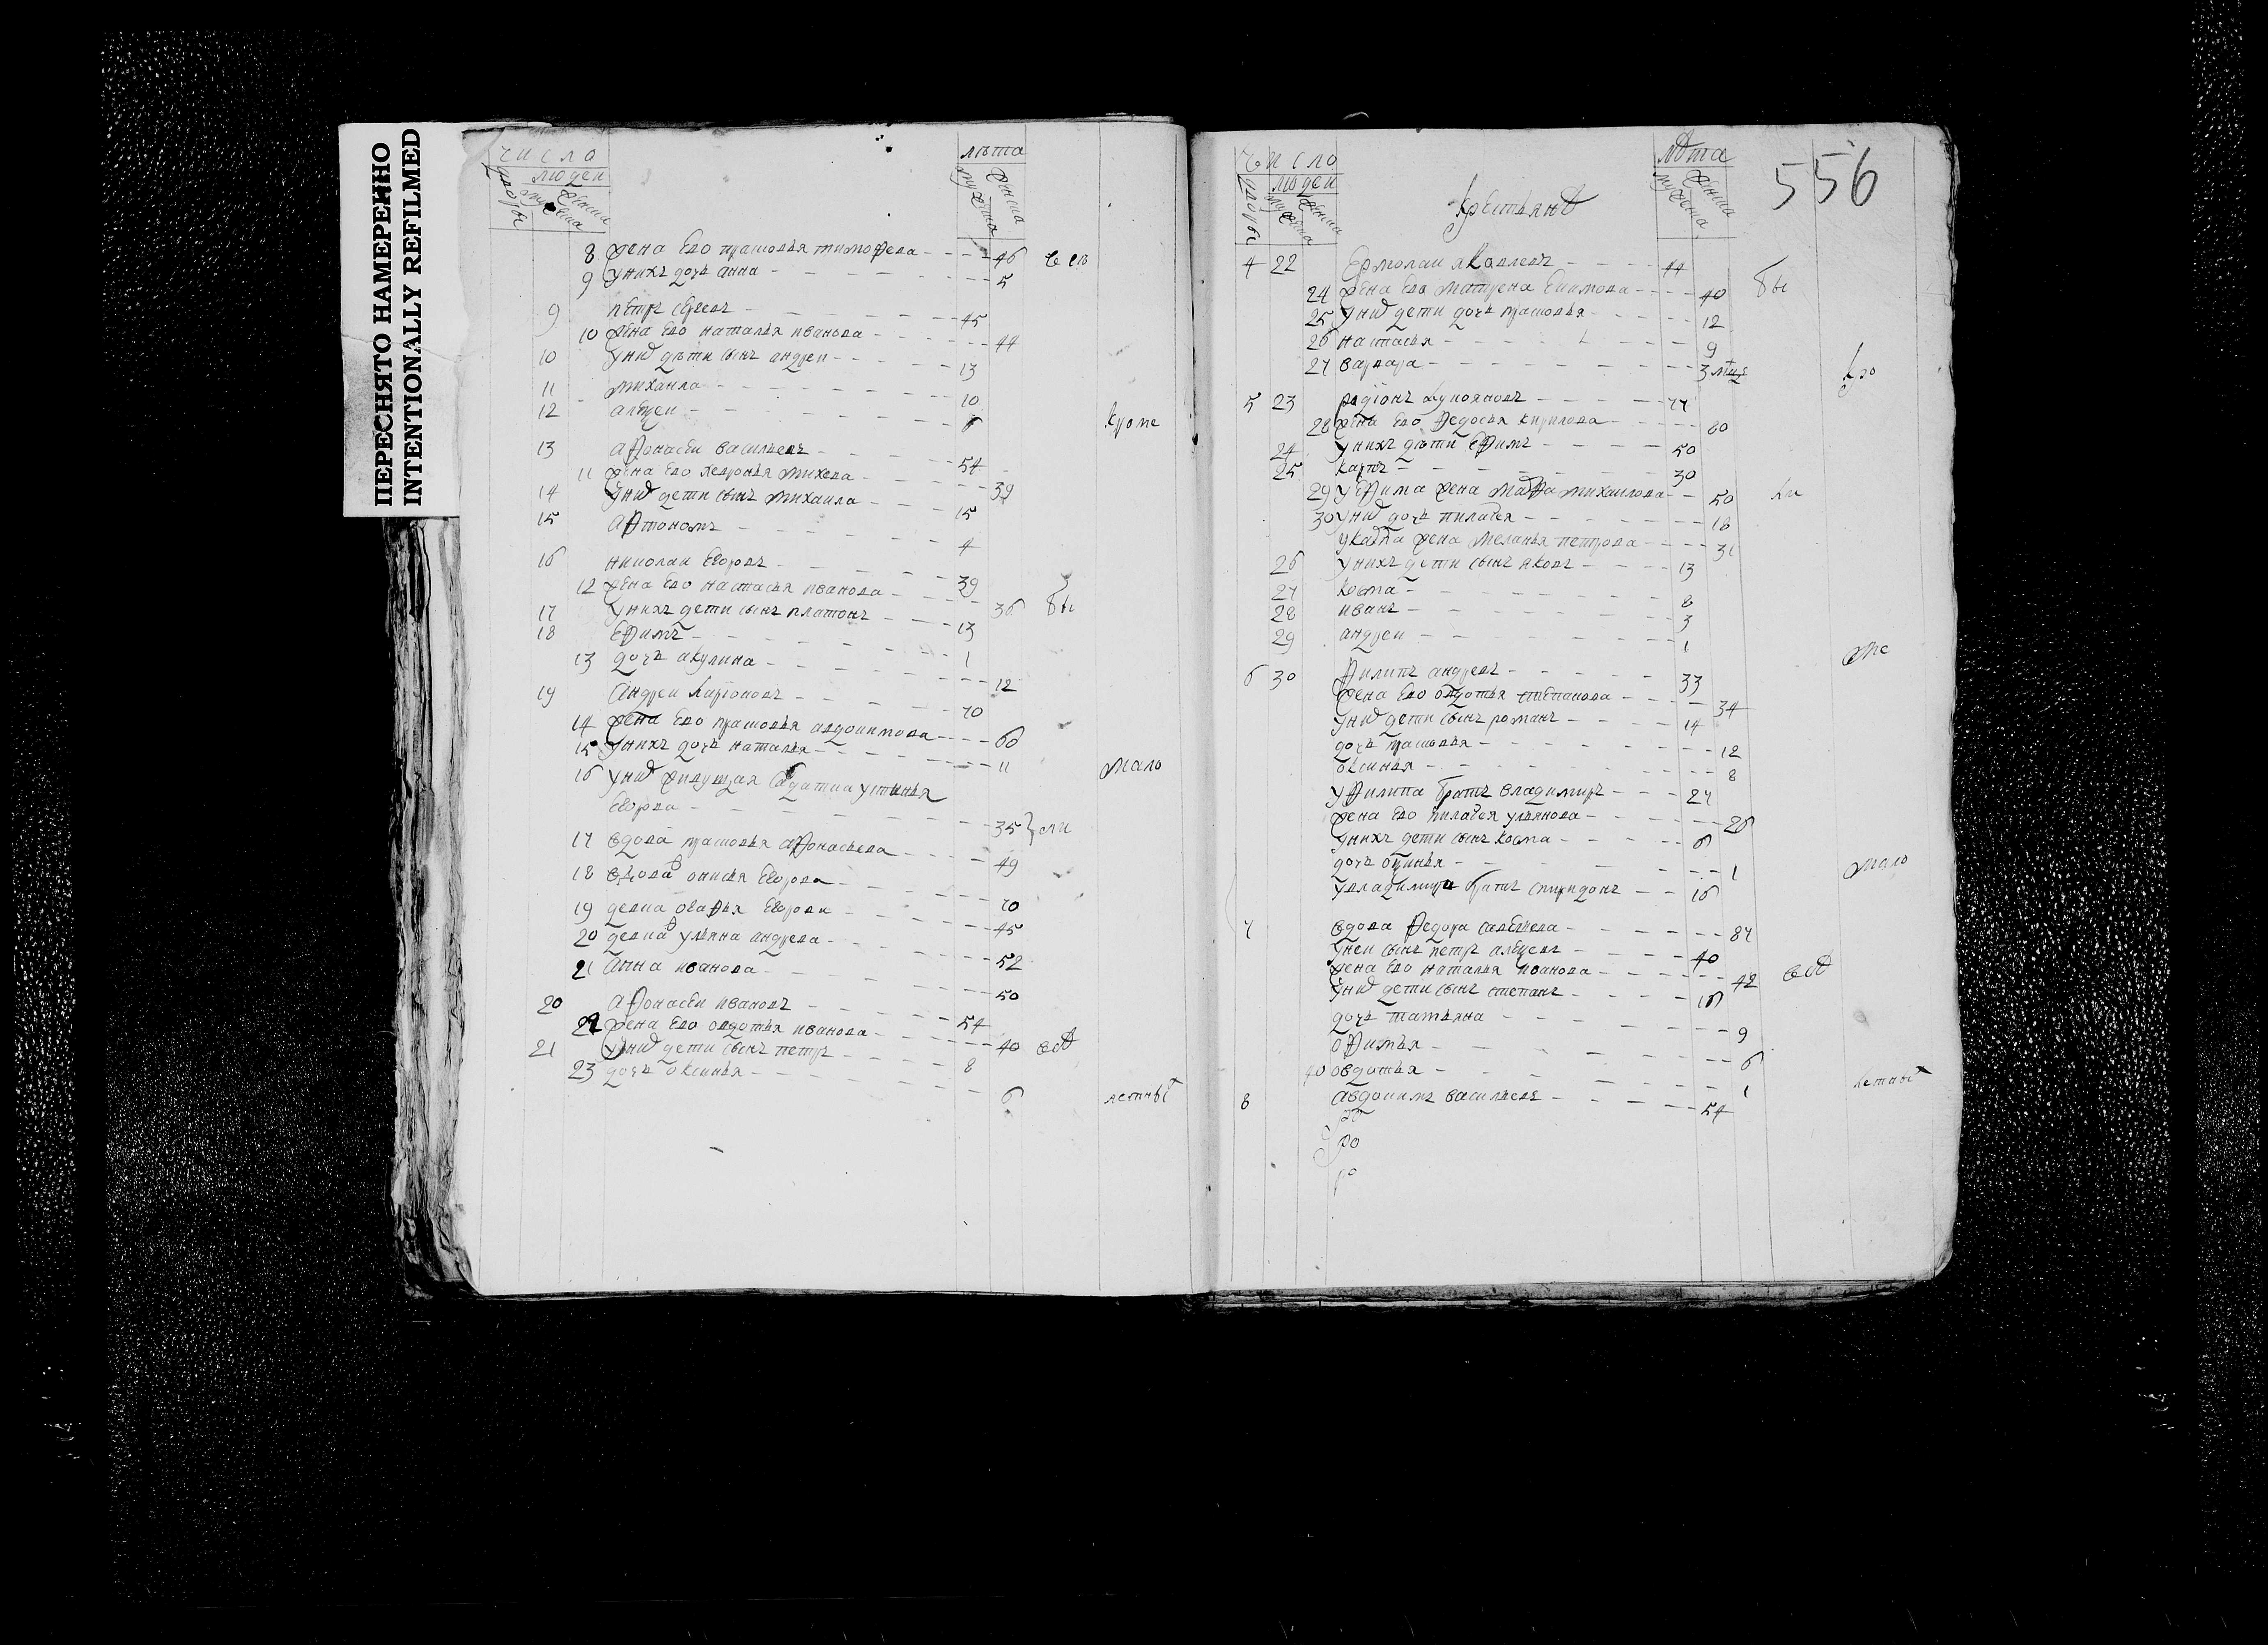 ПЕРЕСНЯТО НАМЕРЕННО
INTENTIONALLY REFILMED
число
людеи
дворы
мужеска
женска
лѣта
мужеска
женска
8 жена ево прасковья тимофеева 46 всѣ
9 у нихъ дочь анна 5
9 петръ 45
10 жена ево наталья иванова 44
10 у них дѣти сынъ андреи 13
11 михаила 10
12 алѣѯеи 6 кроме
13 афонасеи васильевъ 54
11 жена ево хавронья михеева 39
14 у них дети сынъ михаила 15
15 афтономъ 4
16 николаи егоровъ 39
12 жена ево настасья иванова 36 бы
17 у нихъ дети сынъ платонъ 13
18 ефимъ 1
13 дочь акулина 12
19 андреи ларионовъ 70
14 жена ево прасковья авдокимова 60
15 у нихъ дочь наталья 11
16 у них живущая салдатка устинья мало
егорова 35 ли
17 вдова прасковья афонасьева 49
18 вдова онисья егорова 70
19 девка огафья егорова 45
20 девка ульяна андреева 52
21 анна иванова 50
20 афонасеи ивановъ 54
22 жена ево овдотья иванова 40 всѣ
21 у них дети сынъ петръ 8
23 дочь оксинья 6
летных
число
людеи
дворы
мужеска
женска
крестьянѣ
лѣта
мужеска
женска
556
4 22 ермолаи яковлевъ 44
24 жена ево матрена екимова 40 бы
25 у них дети дочь прасковья 12
26 настасья 9
27 варвара 3 мцѣ кро
5 23 родіонъ лукояновъ 77
28 жена ево федосья кирилова 80
24 у нихъ дѣти ефимъ 50
25 карпъ 30
29 у ефима жена марфа михаилова 50 ли
30 у них дочь пилагея 18
у карпа жена меланья петрова 31
26 у нихъ дети сынъ яковъ 13
27 косма 8
28 иванъ 3
29 андреи 1
ме
6 30 филипъ андреевъ 33
жена ево овдотья степанова 34
у них дети сынъ романъ 14
дочь прасковья 12
оксинья 8
у филипа братъ владимиръ 27
жена ево пилагея ульянова 26
у нихъ дети сынъ косма 6
дочь 1 мало
у владимира братъ спиридонъ 16
7 вдова федора савельева 87
у неи сынъ петръ алѣѯеевъ 40
жена ево наталья иванова 42 всѣ
у них дети сынъ степанъ 16
дочь татьяна 9
офимья 6
40 овдотья 1
летных
8 авдокимъ васильевъ 54